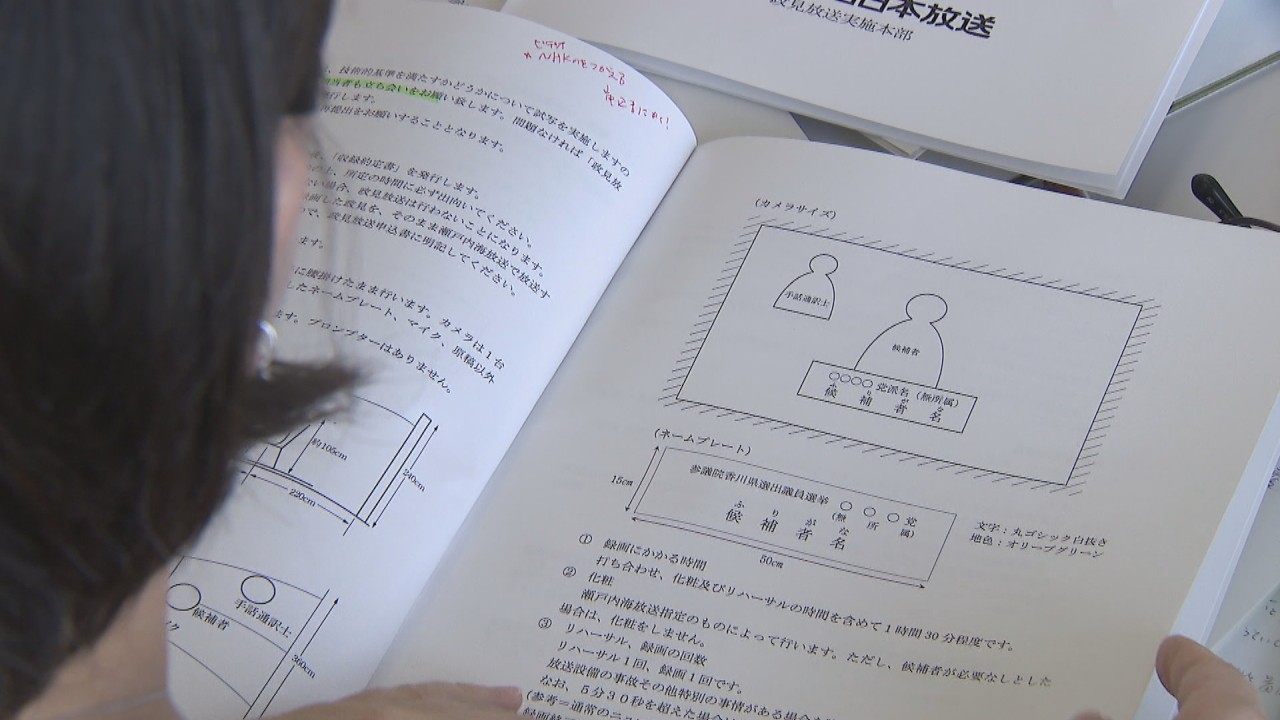 日本放送
政見放送実施本部
ビデオ
NHKのをつかえる
、技術的基準を満たすかどうかについて試写を実施しますの
当者も立ち会いをお願い致します。問題なければ「政見放
行します。
再提出をお願いすることとなります。
、「収録約定書」を発行します。
の上、所定の時間に必ず出向いてください。
ない場合、政見放送は行わないことになります。
録画した政見を、そのまま瀬戸内海放送で放送す
で、政見放送申込書に明記してください。
ます。
に腰掛けたまま行います。カメラは1台
したネームプレート、マイク、原稿以外
ます。プロンプターはありません。
約105cm
220cm
240cm
手話通訳士
候補者
360cm
(カメラサイズ)
手話通訳士
候補者
○○○○党派名(無所属)
ふりがな
候補者名
(ネームプレート)
15cm
参議院香川県選出議員選挙 ○○○党
(無所属)
ふりがな
候補者名
50cm
文字:丸ゴシック白抜き
地色:オリーブグリーン
① 録画にかかる時間
打ち合わせ、化粧及びリハーサルの時間を含めて1時間30分程度です。
② 化粧
瀬戸内海放送指定のものによって行います。ただし、候補者が必要なしとした
場合は、化粧をしません。
③ リハーサル、録画の回数
リハーサル1回、録画1回です。
放送設備の事故その他特別の事情がある場合
なお、5分30秒を超えた場合は
(参考=通常のニュ